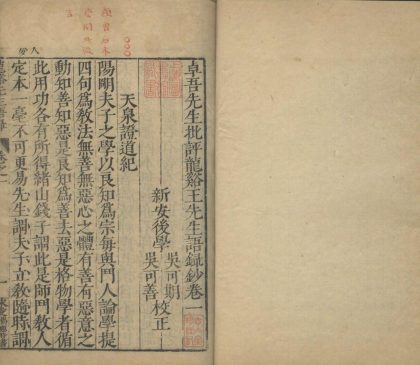 卓吾先生批評龍谿王先生語録鈔卷一
新安後學
吳可期
吳可善
校正
天泉證道紀
陽明夫子之學以良知爲宗每與門人論學提
四句爲教法無善無惡心之體有善有惡意之
動知善知惡是良知爲善去惡是格物學者循
此用功各有所得緒山錢子謂此是師門教人
定本一毫不可更易先生謂夫子立教隨時謂